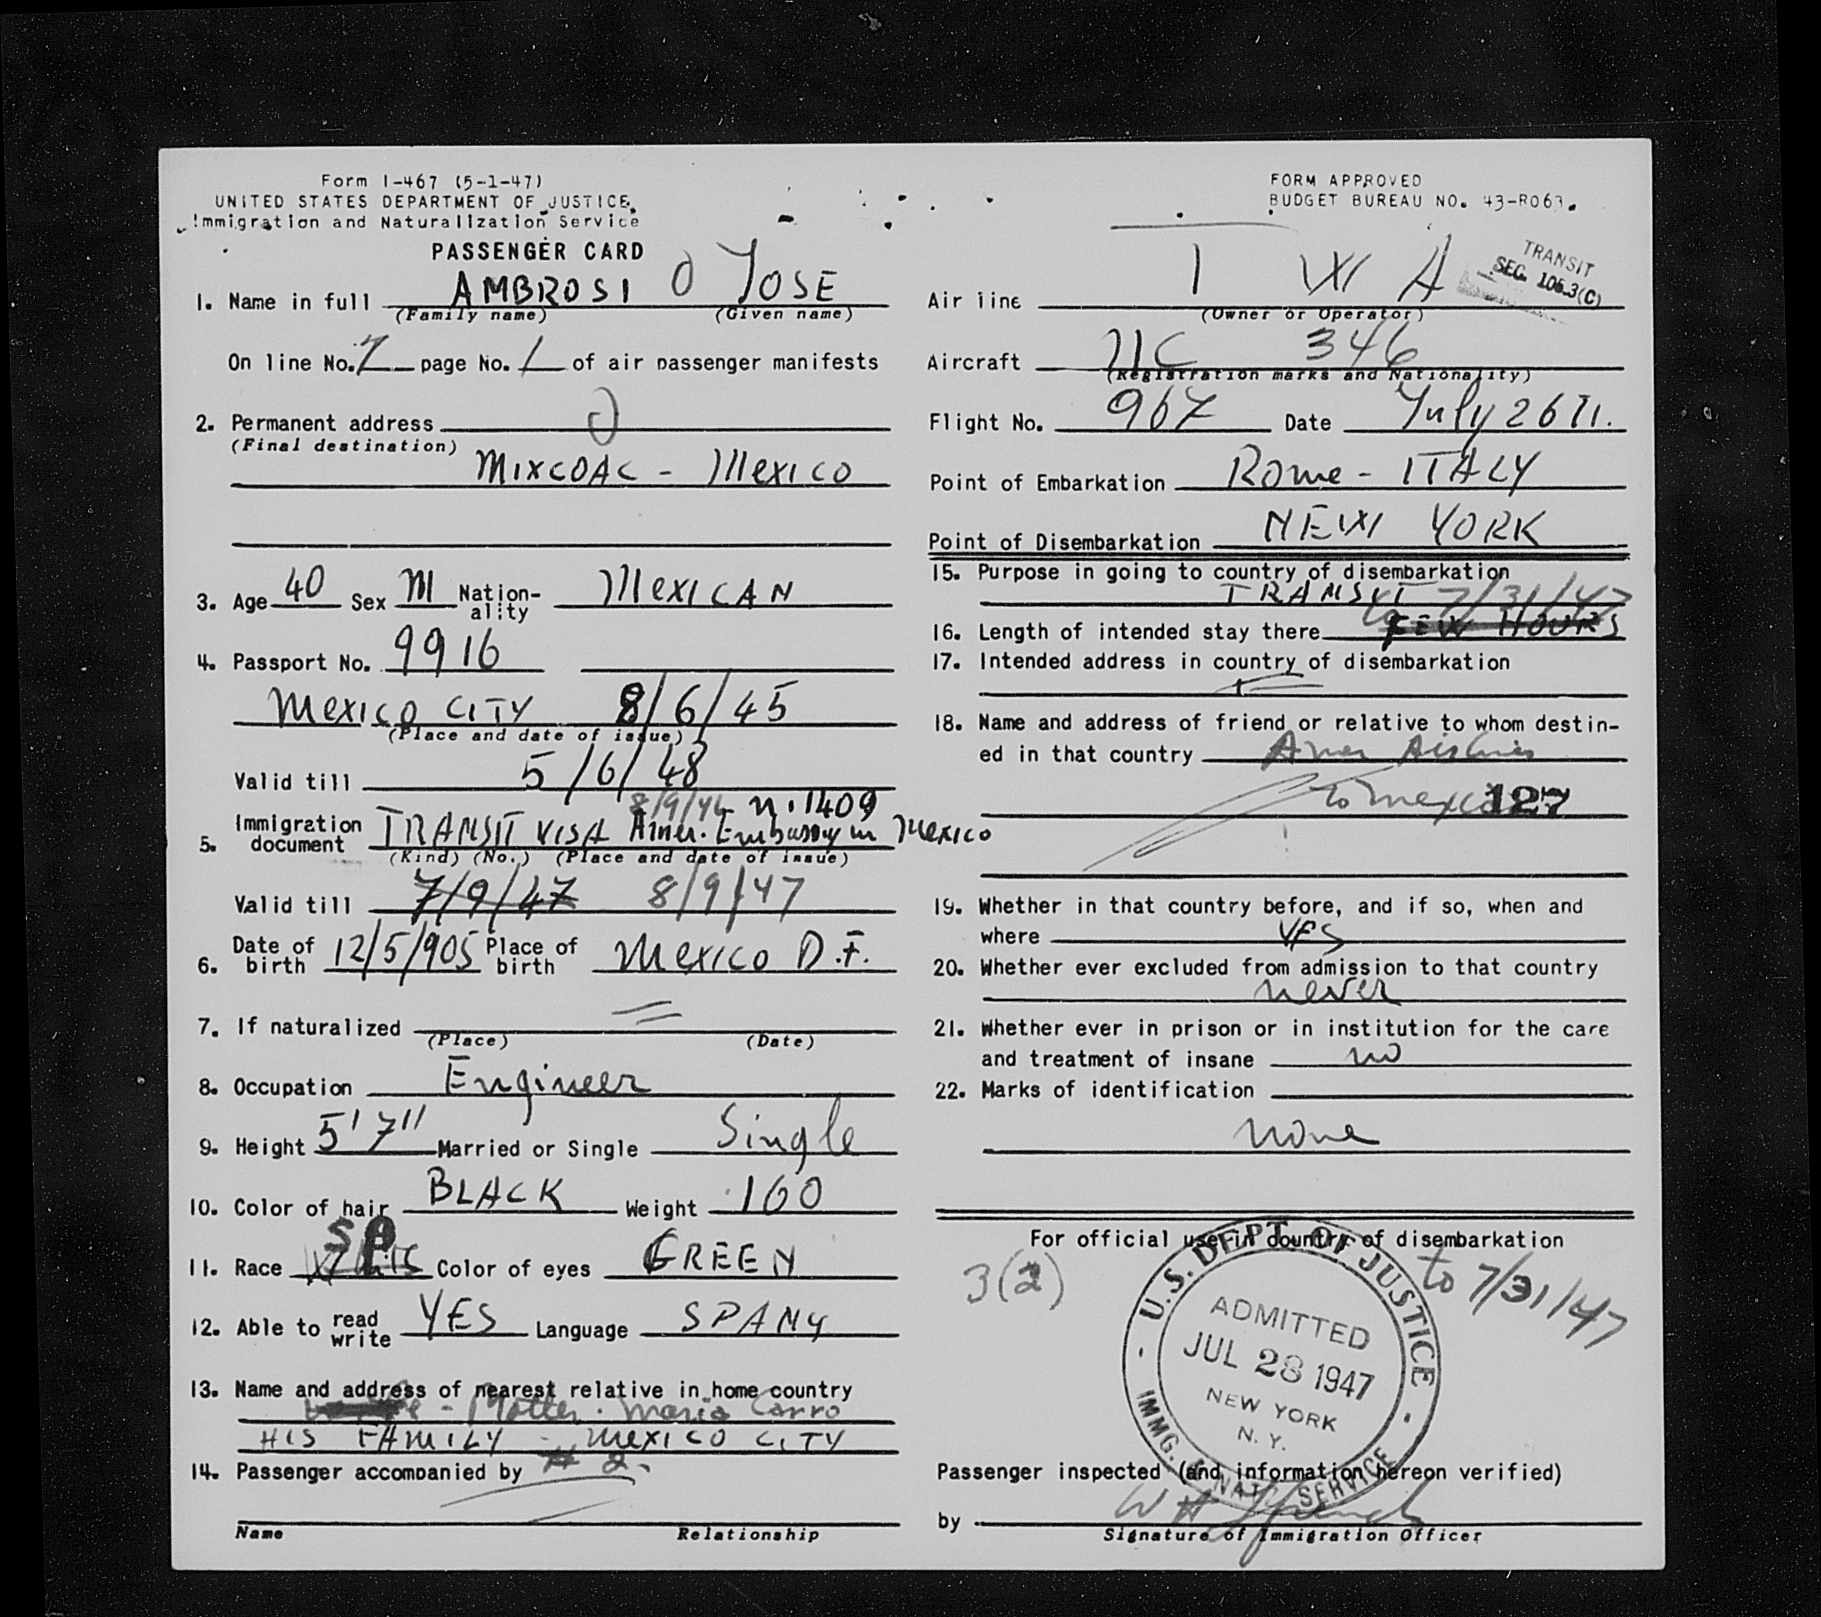 Form I-467 (5-1-47)
UNITED STATES DEPARTMENT OF JUSTICE
Immigration and Naturalization Service
PASSENGER CARD
1. Name in full AMBROSI JOSE
(Family name) (Given name)
On line No. 7 page No. 1 of air passenger manifests
2. Permanent address
(Final destination)
MIXCOAC - MEXICO
3. Age 40 Sex M Nation-ality MEXICAN
4. Passport No. 9916
MEXICO CITY 8/6/45
(Place and date of issue)
Valid till 5/6/48
8/9/46 N. 1409
5. Immigration document TRANSIT VISA Amer. Embassy in Mexico
(Kind) (No.) (Place and date of issue)
Valid till 7/9/47 8/9/47
6. Date of birth 12/5/905 Place of birth MEXICO D.F.
7. If naturalized
(Place) (Date)
8. Occupation Engineer
9. Height 5'7" Married or Single Single
10. Color of hair BLACK Weight 160
SP
11. Race Color of eyes GREEN
12. Able to read write YES Language SPANY
13. Name and address of nearest relative in home country
- Mother. Maria Carro
HIS FAMILY - MEXICO CITY
14. Passenger accompanied by # 2
Name Relationship
FORM APPROVED
BUDGET BUREAU NO. 43-R063.
TRANSIT
SEC. 105.3(C)
Air line T W A
(Owner or Operator)
Aircraft NC 346
(Registration marks and Nationality)
Flight No. 967 Date July 26
Point of Embarkation Rome - ITALY
Point of Disembarkation NEW YORK
15. Purpose in going to country of disembarkation
TRANSIT 7/31/47
16. Length of intended stay there FEW HOURS
17. Intended address in country of disembarkation
18. Name and address of friend or relative to whom destin-
ed in that country Amer Airlines
to Mexico 127
19. Whether in that country before, and if so, when and
where YES
20. Whether ever excluded from admission to that country
never
21. Whether ever in prison or in institution for the care
and treatment of insane no
22. Marks of identification
none
For official use in country of disembarkation
3(2)
to 7/31/47
U.S. DEPT. OF JUSTICE
ADMITTED
JUL 28 1947
NEW YORK
N. Y.
IMMG. & NAT. SERVICE
Passenger inspected (and information hereon verified)
by
Signature of Immigration Officer